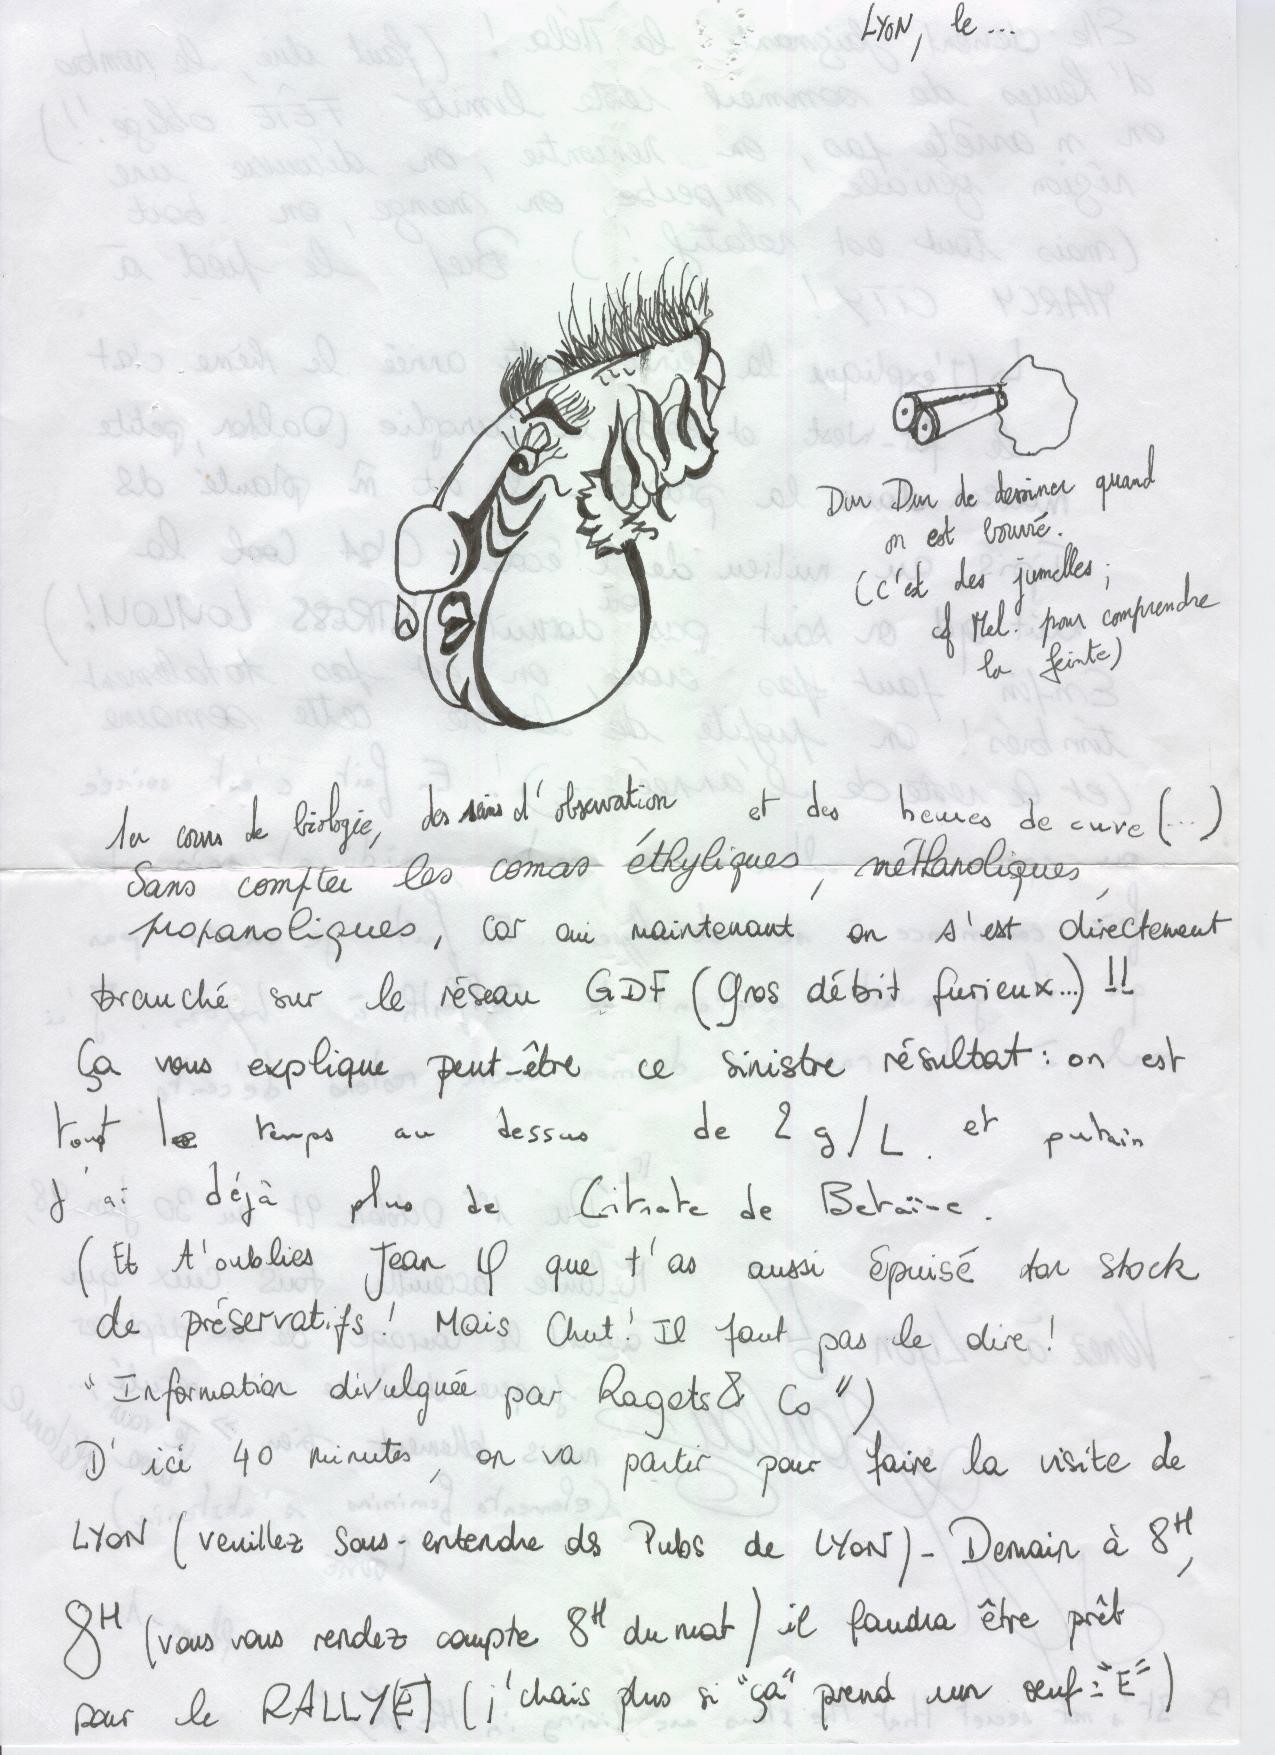 LYON, le ...
Dur Dur de dessiner quand
on est bourré.
(c'est des jumelles ;
cf Mel. pour comprendre
la feinte)
1er cours de biologie, des soirs d'observation et des heures de cuve (...)
Sans compter les comas éthyliques, méthanoliques,
propanoliques, car oui maintenant on s'est directement
branché sur le réseau GDF (Gros débit furieux...) !!
Ça vous explique peut-être ce sinistre résultat : on est
tout le temps au dessus de 2 g/L. et putain
j'ai déjà plus de Citrate de Bétaïne.
(Et t'oublies Jean φ que t'as aussi épuisé ton stock
de préservatifs! Mais Chut! Il faut pas le dire!
"Information divulguée par Ragots & Co")
D'ici 40 minutes, on va partir pour faire la visite de
LYON (veuillez sous-entendre ds Pubs de LYON) - Demain à 8H,
8H (vous vous rendez compte 8H du mat) il faudra être prêt
pour le RALLY(E) (j'chais plus si "ça" prend un oeuf : "E")